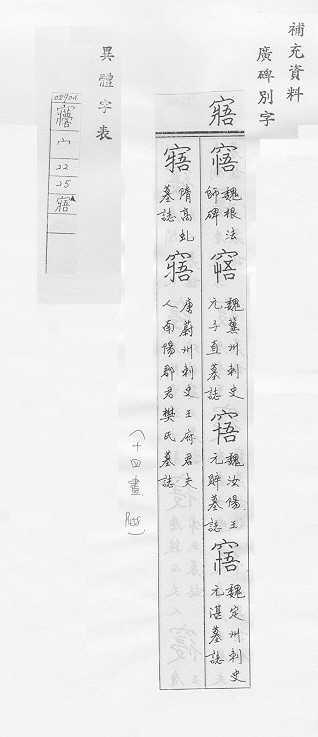 補充資料
廣碑別字
寤
魏根法
師碑
魏冀州刺史
元子直墓誌
魏汝陽王
元賥墓誌
魏定州刺史
元湛墓誌
隋高虬
墓誌
唐蔚州刺史王府君夫
人南陽郡君樊氏墓誌
(十四畫
異體字表
宀
22
25
寤